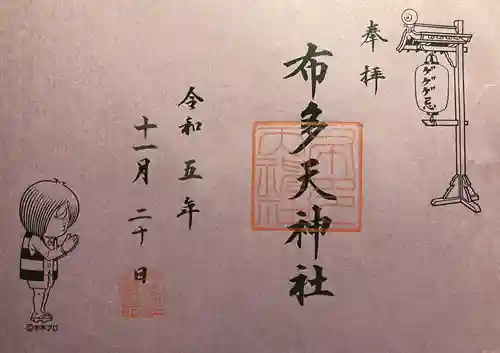 奉拝
ゲゲゲ忌
布多天神社
令和五年
十一月二十日
©水木プロ